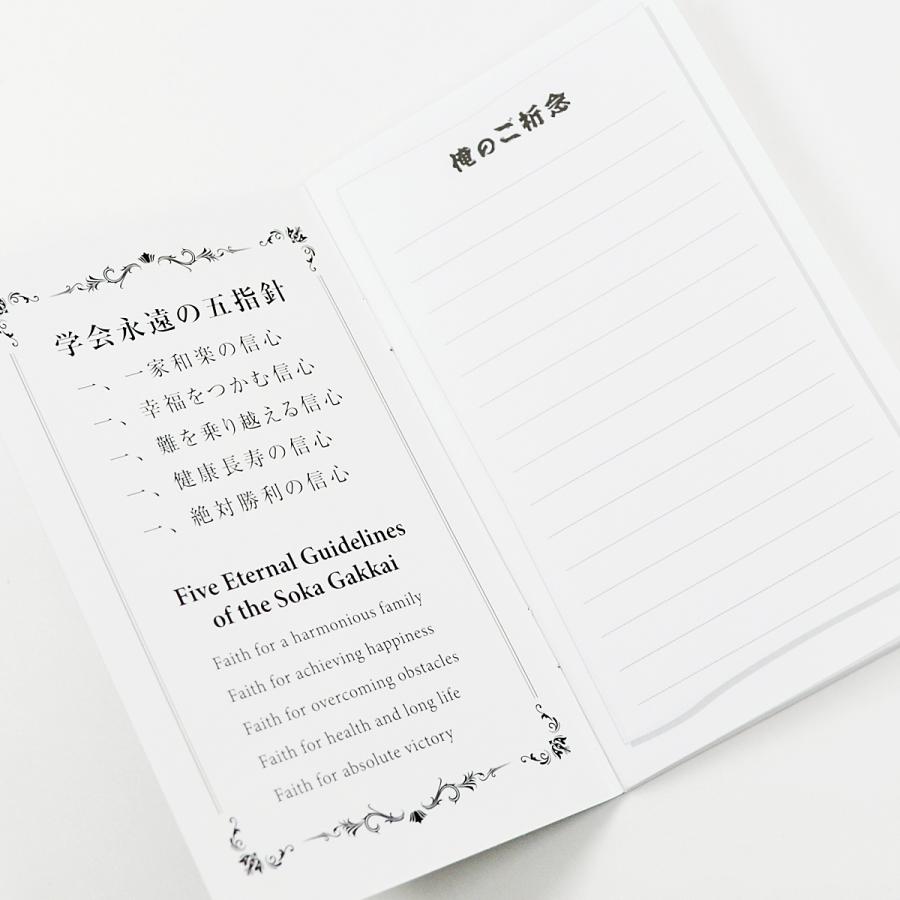 学会永遠の五指針
一、一家和楽の信心
一、幸福をつかむ信心
一、難を乗り越える信心
一、健康長寿の信心
一、絶対勝利の信心
Five Eternal Guidelines
of the Soka Gakkai
Faith for a harmonious family
Faith for achieving happiness
Faith for overcoming obstacles
Faith for health and long life
Faith for absolute victory
俺のご祈念